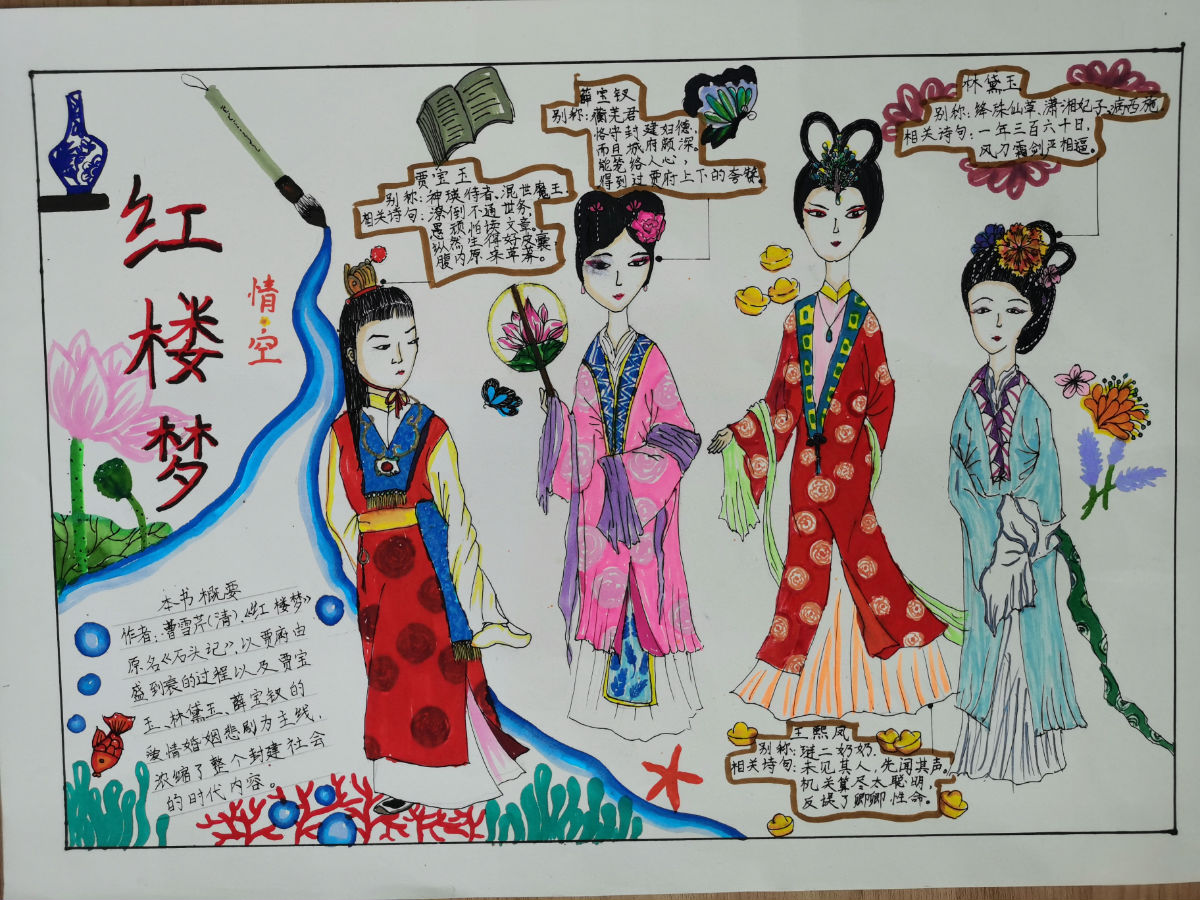 红楼梦
情·空
贾宝玉
别称:神瑛侍者、混世魔王
相关诗句:潦倒不通世务,
愚顽怕读文章。
纵然生得好皮囊,
腹内原来草莽。
薛宝钗
别称:蘅芜君
恪守封建妇德,
而且城府颇深。
能笼络人心,
得到过贾府上下的夸赞。
林黛玉
别称:绛珠仙草、潇湘妃子、病西施
相关诗句:一年三百六十日,
风刀霜剑严相逼。
本书概要
作者:曹雪芹(清).《红楼梦》
原名《石头记》,以贾府由
盛到衰的过程以及贾宝
玉、林黛玉、薛宝钗的
爱情婚姻悲剧为主线,
浓缩了整个封建社会
的时代内容。
王熙凤
别称:琏二奶奶.
相关诗句:未见其人,先闻其声。
机关算尽太聪明,
反误了卿卿性命。